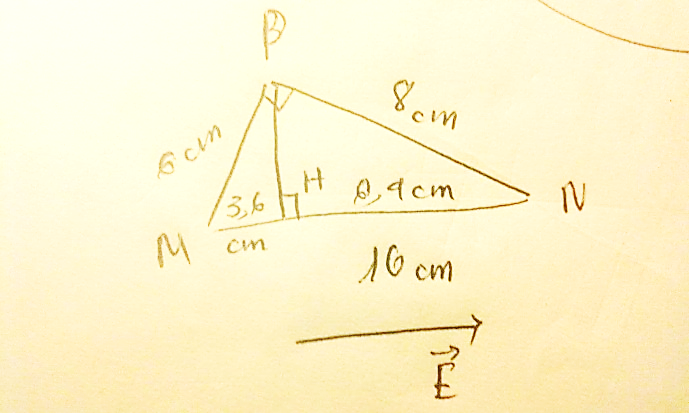 B
8 cm
6 cm
H
3,6
cm
6,4 cm
M
N
10 cm
E